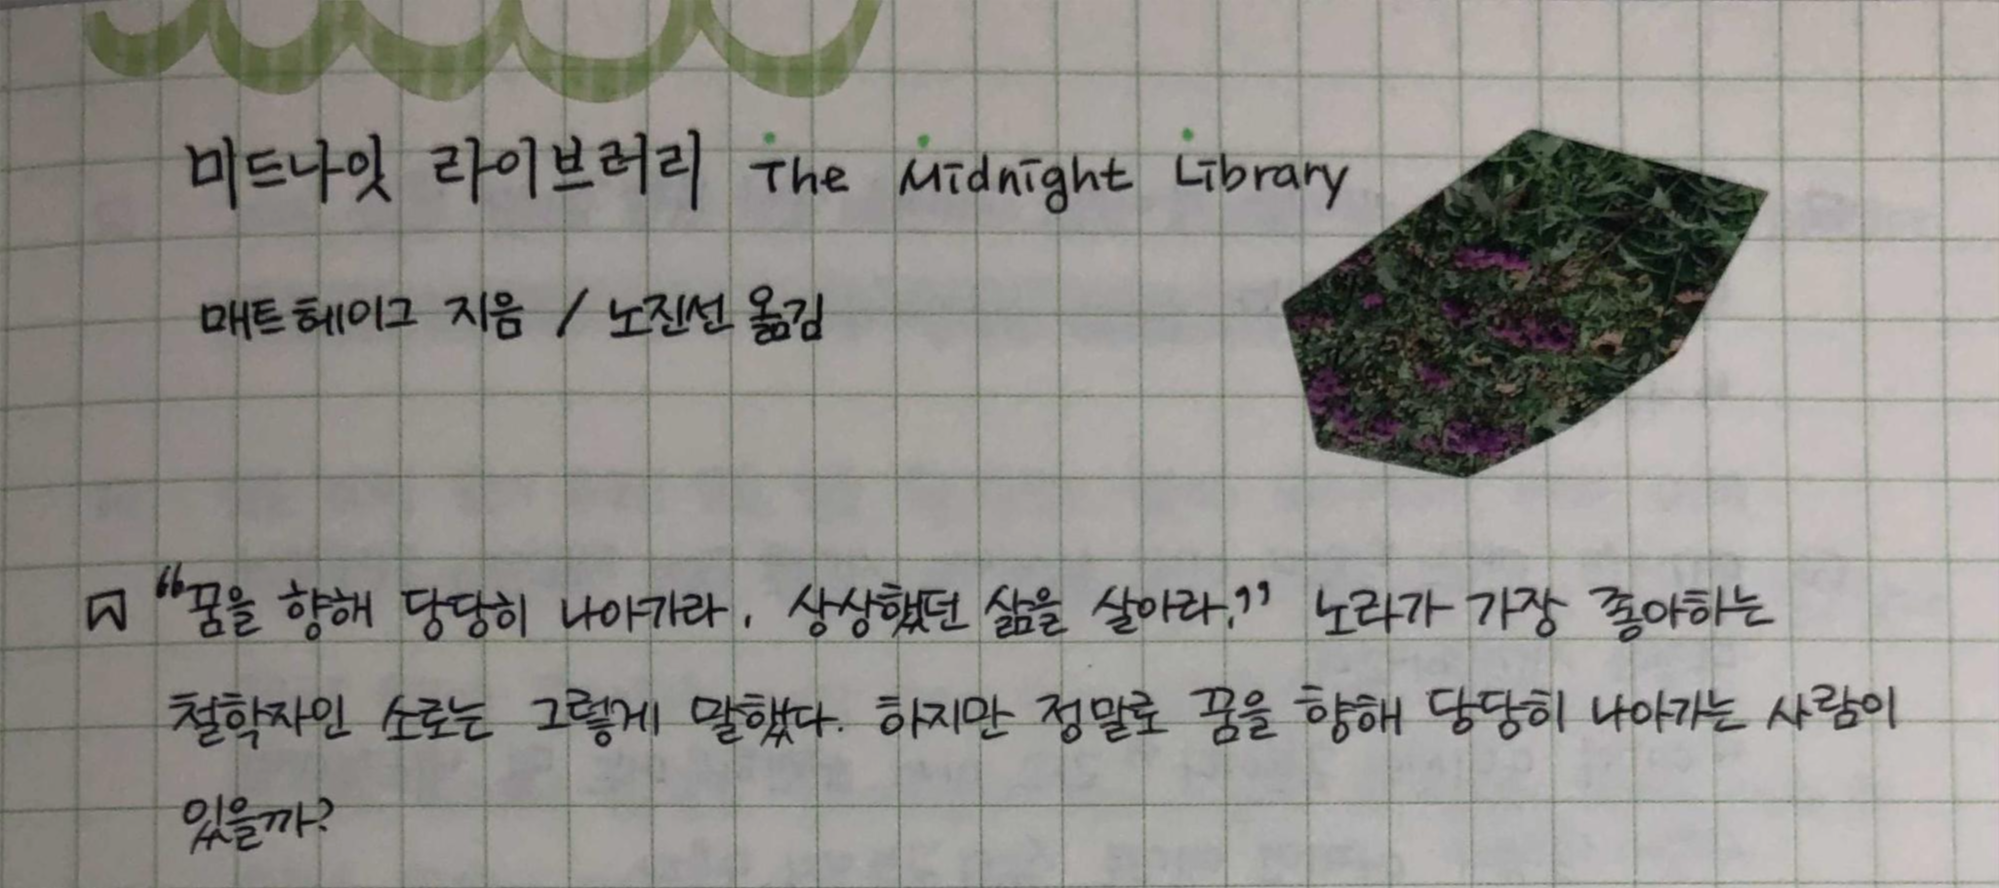 미드나잇 라이브러리 The Midnight Library
매트 헤이그 지음 / 노진선 옮김
“꿈을 향해 당당히 나아가라. 상상했던 삶을 살아라.” 노라가 가장 좋아하는
철학자인 소로는 그렇게 말했다. 하지만 정말로 꿈을 향해 당당히 나아가는 사람이
있을까?